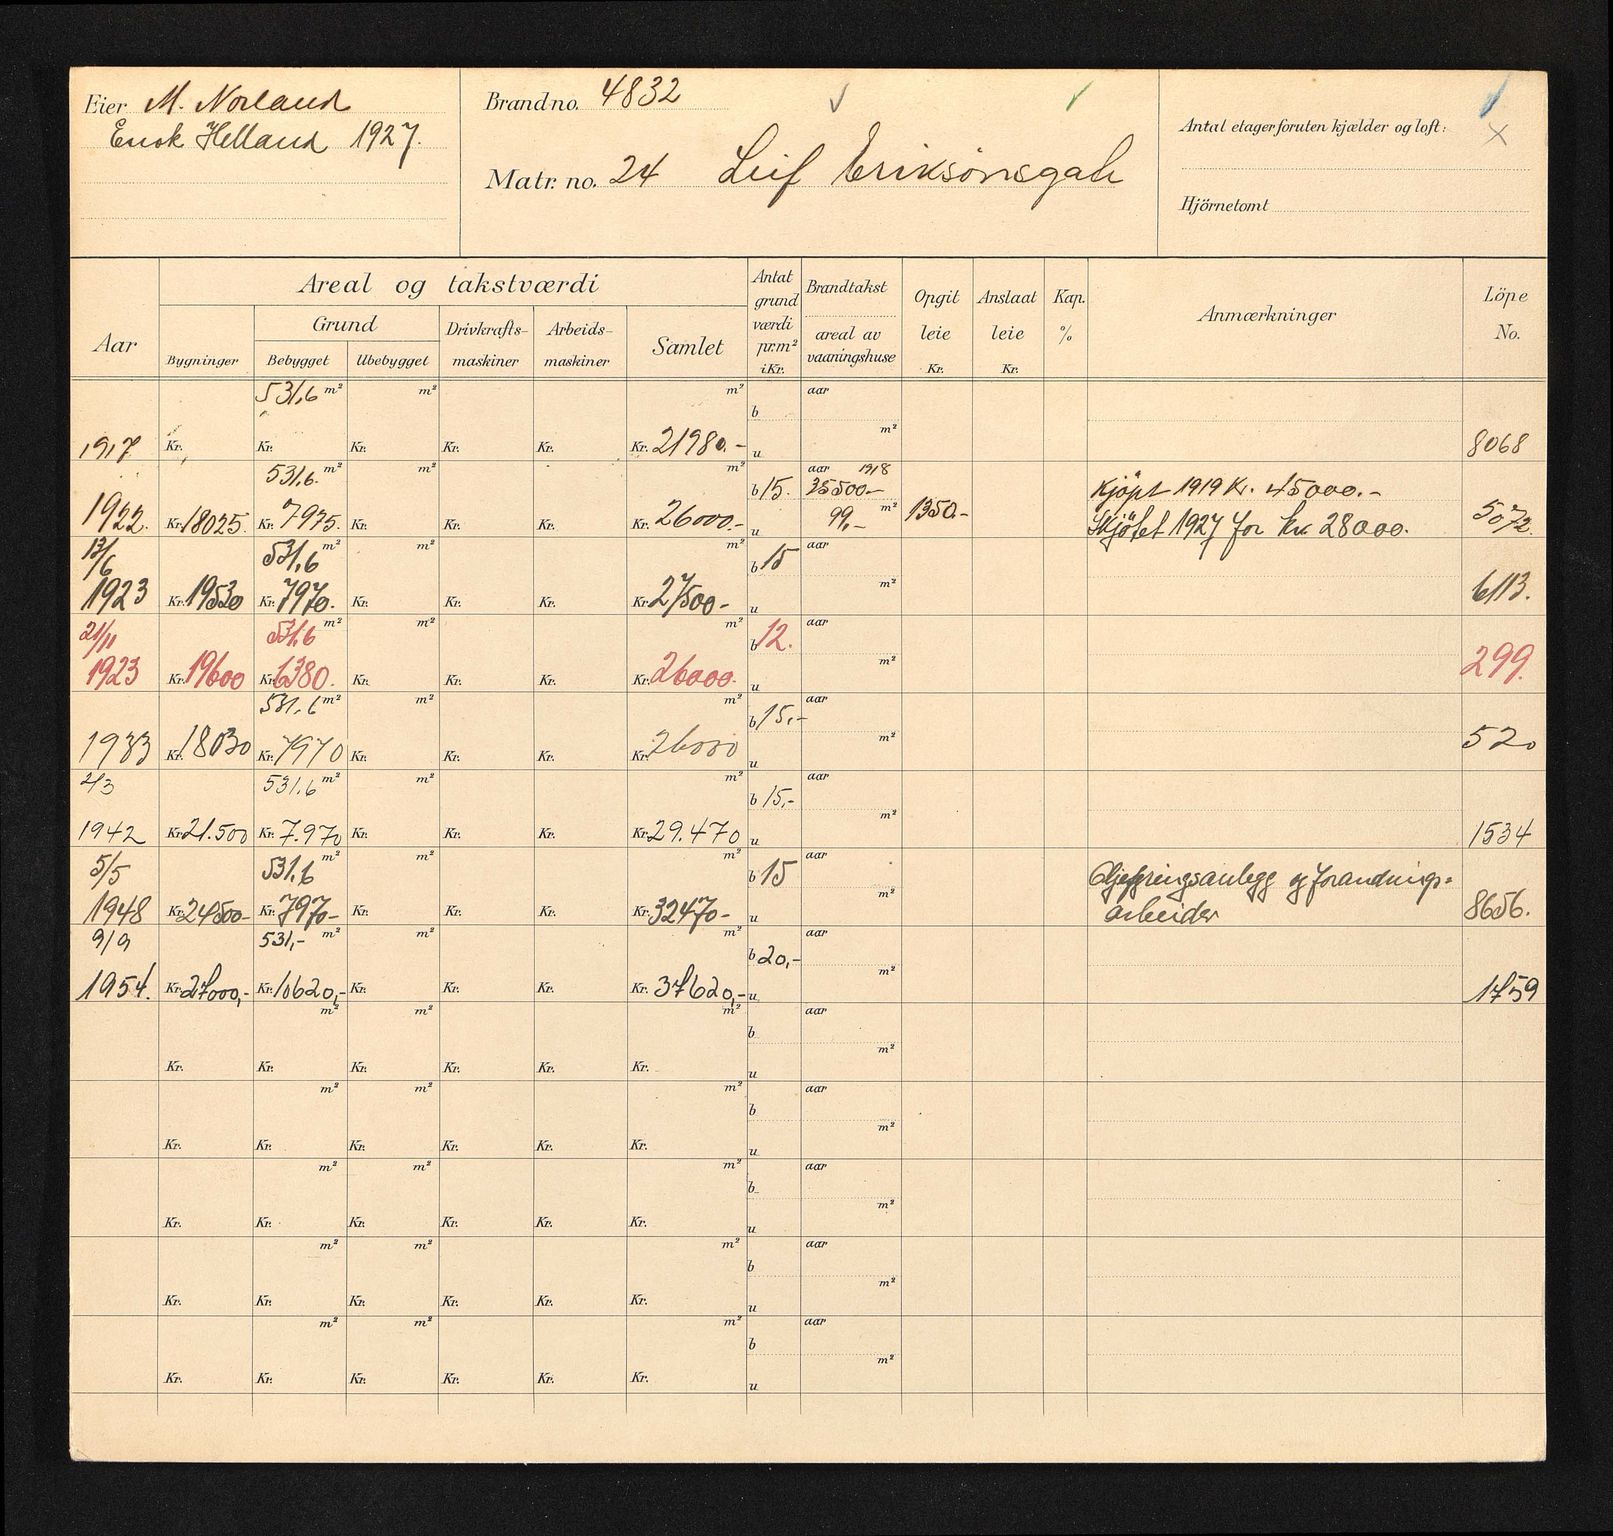 Eier M. Norland
Enok Helland 1927.
Brandno. 4832
Matr. no. 24 Leif Eriksönsgate
Antal etager foruten kjælder og loft:
Hjörnetomt
Aar
Areal og takstværdi
Grund
Bygninger
Bebygget
Ubebygget
Drivkrafts-maskiner
Arbeids-maskiner
Samlet
Antat grund værdi pr.m² i Kr.
Brandtakst
areal av vaaningshuse
Opgit leie Kr.
Anslaat leie Kr.
Kap. %
Anmærkninger
Löpe No.
531,6 m² m² m² aar
b
m²
1917 Kr. Kr. Kr. Kr. Kr. Kr. 21980.- u 8068
531,6. m² m² m² b 15. aar 1918
35500.- Kjöpt 1919 Kr. 45000.-
1922. Kr. 18025. Kr. 7975. Kr. Kr. Kr. Kr. 26000.- u 99,- m² 1350.- Skjötet 1927 for kr. 28000. 5072.
13/6 531,6 m² m² m² b 15 aar
m²
1923 Kr. 19530 Kr. 7970. Kr. Kr. Kr. Kr. 27500- u 6113.
21/11 531,6 m² m² m² b 12. aar
m²
1923 Kr. 19600 Kr. 6380. Kr. Kr. Kr. Kr. 26000. u 299.
531,6 m² m² m² b 15,- aar
m²
1933 Kr. 18030 Kr. 7970 Kr. Kr. Kr. Kr. 26000 u 520
2/3 531,6 m² m² m² b 15,- aar
m²
1942 Kr. 21.500 Kr. 7.970 Kr. Kr. Kr. Kr. 29.470 u 1534
5/5 531,6 m² m² m² b 15 aar
og forandrings-
1948 Kr. 24500- Kr. 7970- Kr. Kr. Kr. Kr. 32470- u m² arbeider 8656.
9/9 531,- m² m² m² b 20,- aar
m²
1954. Kr. 27000,- Kr. 10620,- Kr. Kr. Kr. Kr. 37620,- u 1759
m² m² m² aar
b
m²
Kr. Kr. Kr. Kr. Kr. Kr. u
m² m² m² aar
b
m²
Kr. Kr. Kr. Kr. Kr. Kr. u
m² m² m² aar
b
m²
Kr. Kr. Kr. Kr. Kr. Kr. u
m² m² m² aar
b
m²
Kr. Kr. Kr. Kr. Kr. Kr. u
m² m² m² aar
b
m²
Kr. Kr. Kr. Kr. Kr. Kr. u